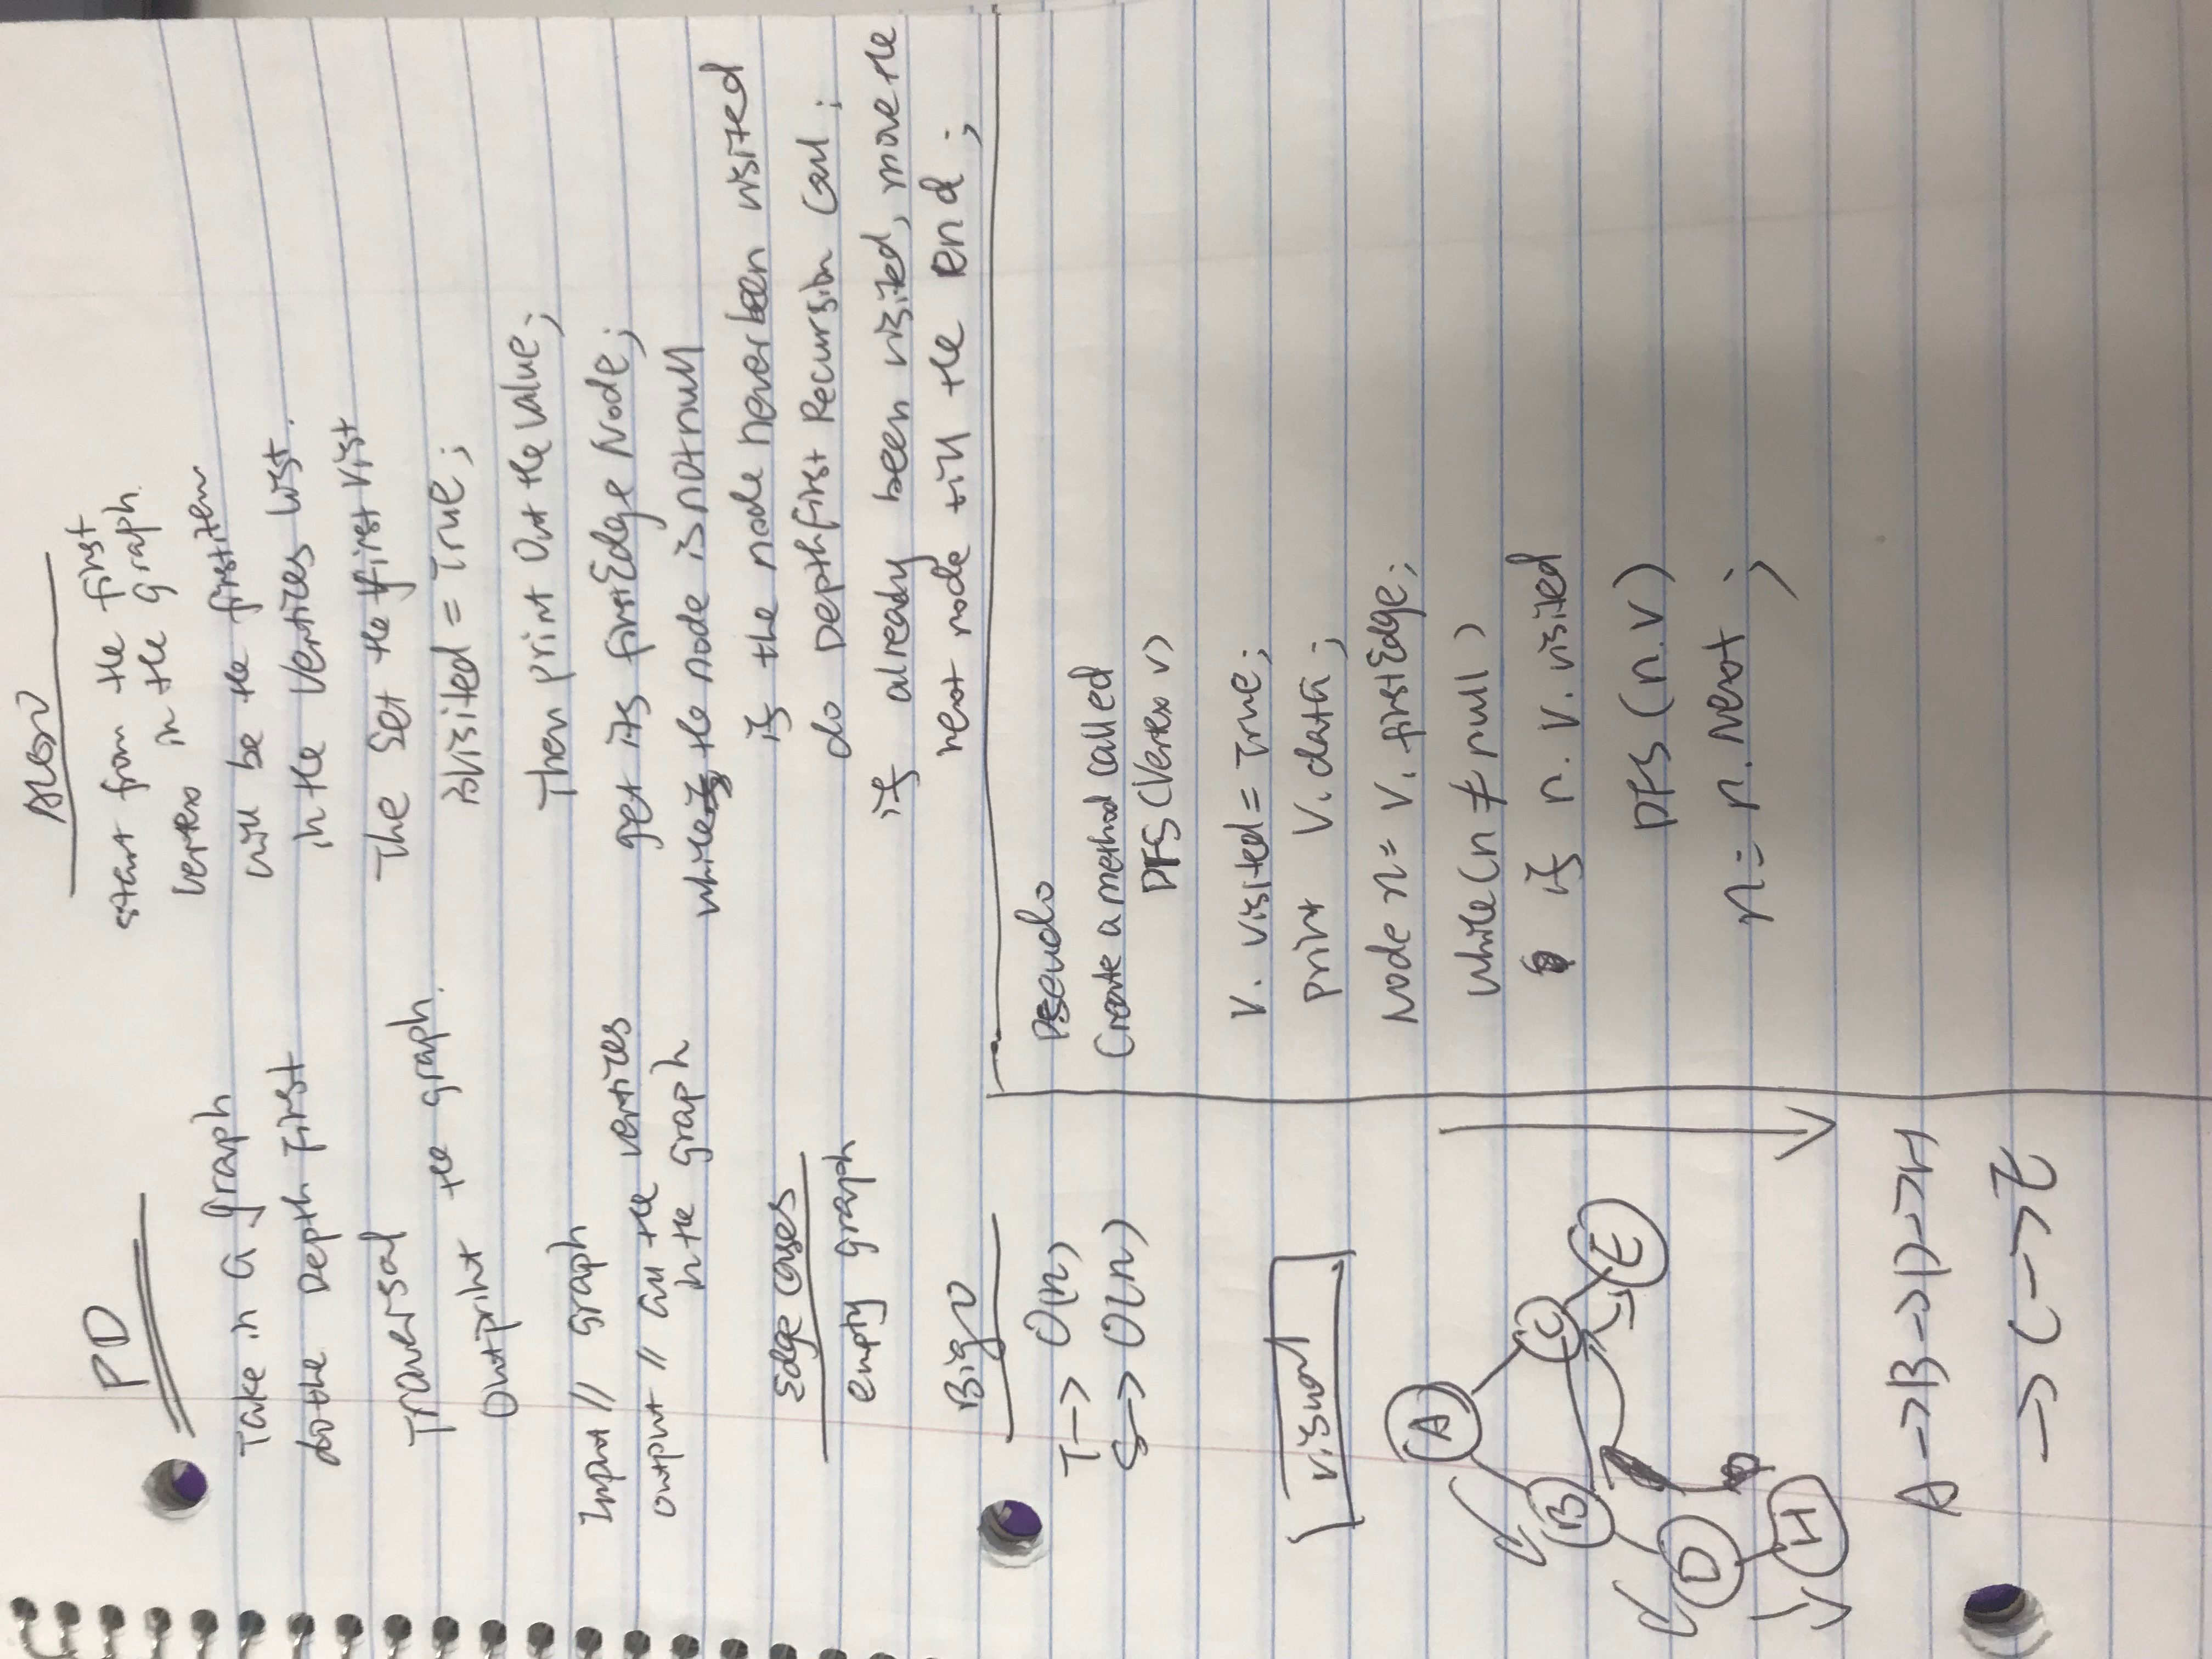 PD
Take in a graph
do the Depth First
Traversal
Out print the graph.
Input // graph
output // all the vertices
in the graph
Edge cases
empty graph
Big O
T -> O(n)
S -> O(n)
visual
A
B
C
E
D
H
A -> B -> D -> H
-> C -> E
ALGO
start from the first
vertex in the graph
will be the first item
in the Vertices List.
The Set the first Vist
isVisited = True;
Then print Out the value;
get its firstEdge Node;
while the node is not null
if the node never been visited
do Depthfirst Recursion Call;
if already been visited, move the
next node till the end;
Pseudo
Create a method called
DFS (Vertex v)
V. visited = True;
print V. data;
Node n = V. firstEdge;
while (n ≠ null)
if n. V. visited
DFS (n. V)
n = n. Next ;